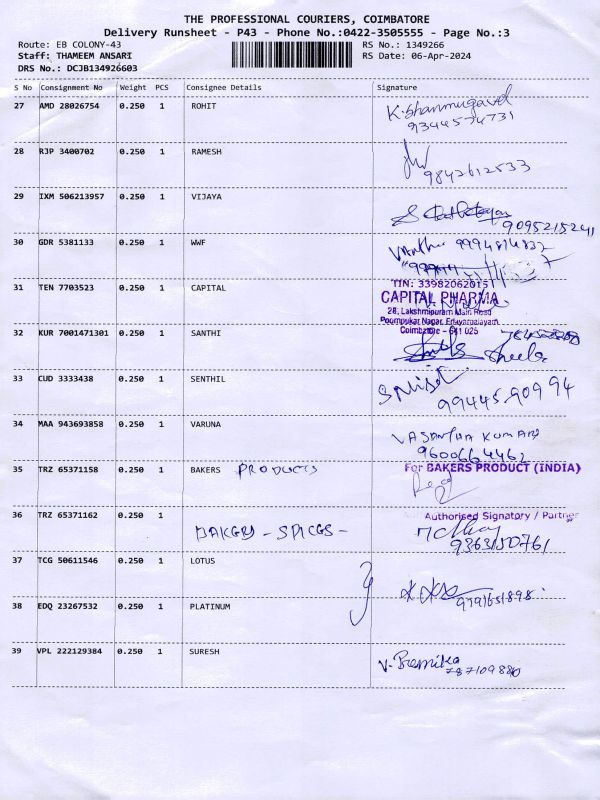 THE PROFESSIONAL COURIERS, COIMBATORE
Delivery Runsheet - P43 - Phone No.:0422-3505555 - Page No.:3
Route: EB COLONY-43
RS No.: 1349266
Staff: THAMEEM ANSARI
RS Date: 06-Apr-2024
DRS No.: DCJB134926603
S No Consignment No Weight PCS Consignee Details Signature
27 AMD 28026754 0.250 1 ROHIT K. Shanmugavel
9344574731
28 RJP 3400702 0.250 1 RAMESH
9842612533
29 IXM 506213957 0.250 1 VIJAYA
9095215241
30 GDR 5381133 0.250 1 WWF
31 TEN 7703523 0.250 1 CAPITAL
TIN: 33982062015
CAPITAL PHARMA
28, Lakshmipuram Main Road
Poompukar Nagar, Edayarpalayam,
Coimbatore - 641 025
32 KUR 7001471301 0.250 1 SANTHI
Sheela
33 CUD 3333438 0.250 1 SENTHIL
9944590994
34 MAA 943693858 0.250 1 VARUNA VASANTHA KUMARI
9600664462
35 TRZ 65371158 0.250 1 BAKERS PRODUCTS For BAKERS PRODUCT (INDIA)
36 TRZ 65371162 0.250 1 Authorised Signatory / Partner
BAKERY - SPICES -
9363150761
37 TCG 50611546 0.250 1 LOTUS
9791651898
38 EDQ 23267532 0.250 1 PLATINUM
39 VPL 222129384 0.250 1 SURESH V. Premika
787109880